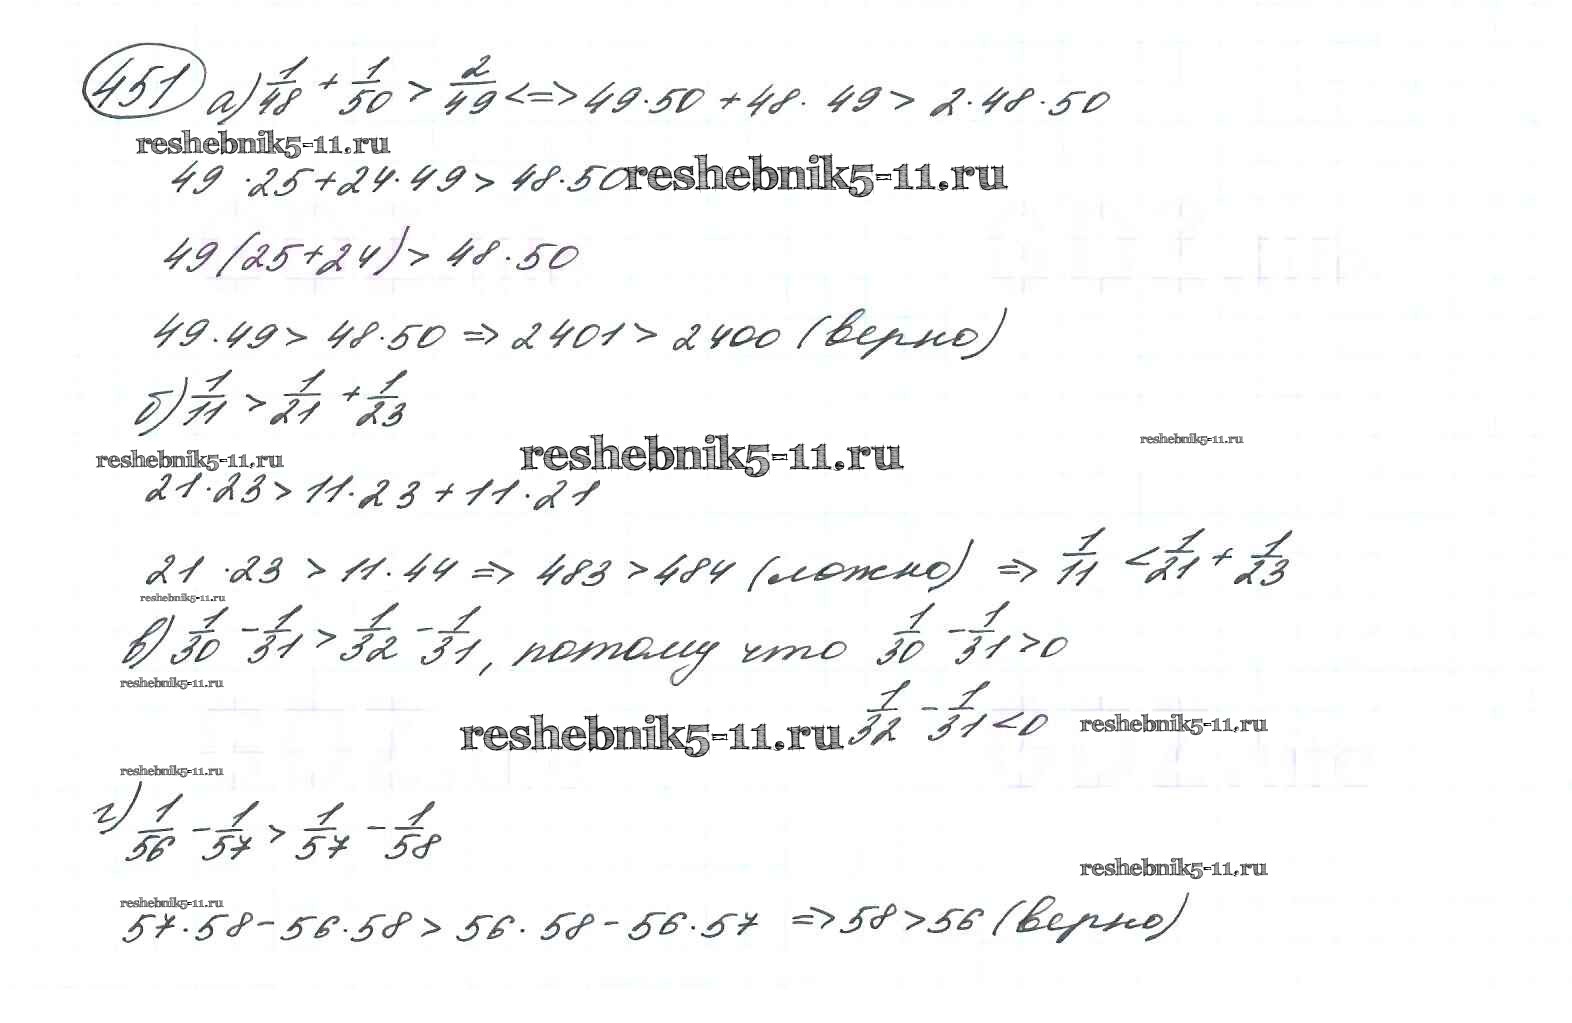 451 а) 1/48 + 1/50 > 2/49 <=> 49·50 + 48·49 > 2·48·50
reshebnik5-11.ru
49·25 + 24·49 > 48·50 reshebnik5-11.ru
49(25+24) > 48·50
49·49 > 48·50 => 2401 > 2400 (верно)
б) 1/11 > 1/21 + 1/23
reshebnik5-11.ru reshebnik5-11.ru reshebnik5-11.ru
21·23 > 11·23 + 11·21
21·23 > 11·44 => 483 > 484 (ложно) => 1/11 < 1/21 + 1/23
reshebnik5-11.ru
в) 1/30 - 1/31 > 1/32 - 1/31, потому что 1/30 - 1/31 > 0
reshebnik5-11.ru
reshebnik5-11.ru 1/32 - 1/31 < 0 reshebnik5-11.ru
reshebnik5-11.ru
г) 1/56 - 1/57 > 1/57 - 1/58
reshebnik5-11.ru
reshebnik5-11.ru
57·58 - 56·58 > 56·58 - 56·57 => 58 > 56 (верно)